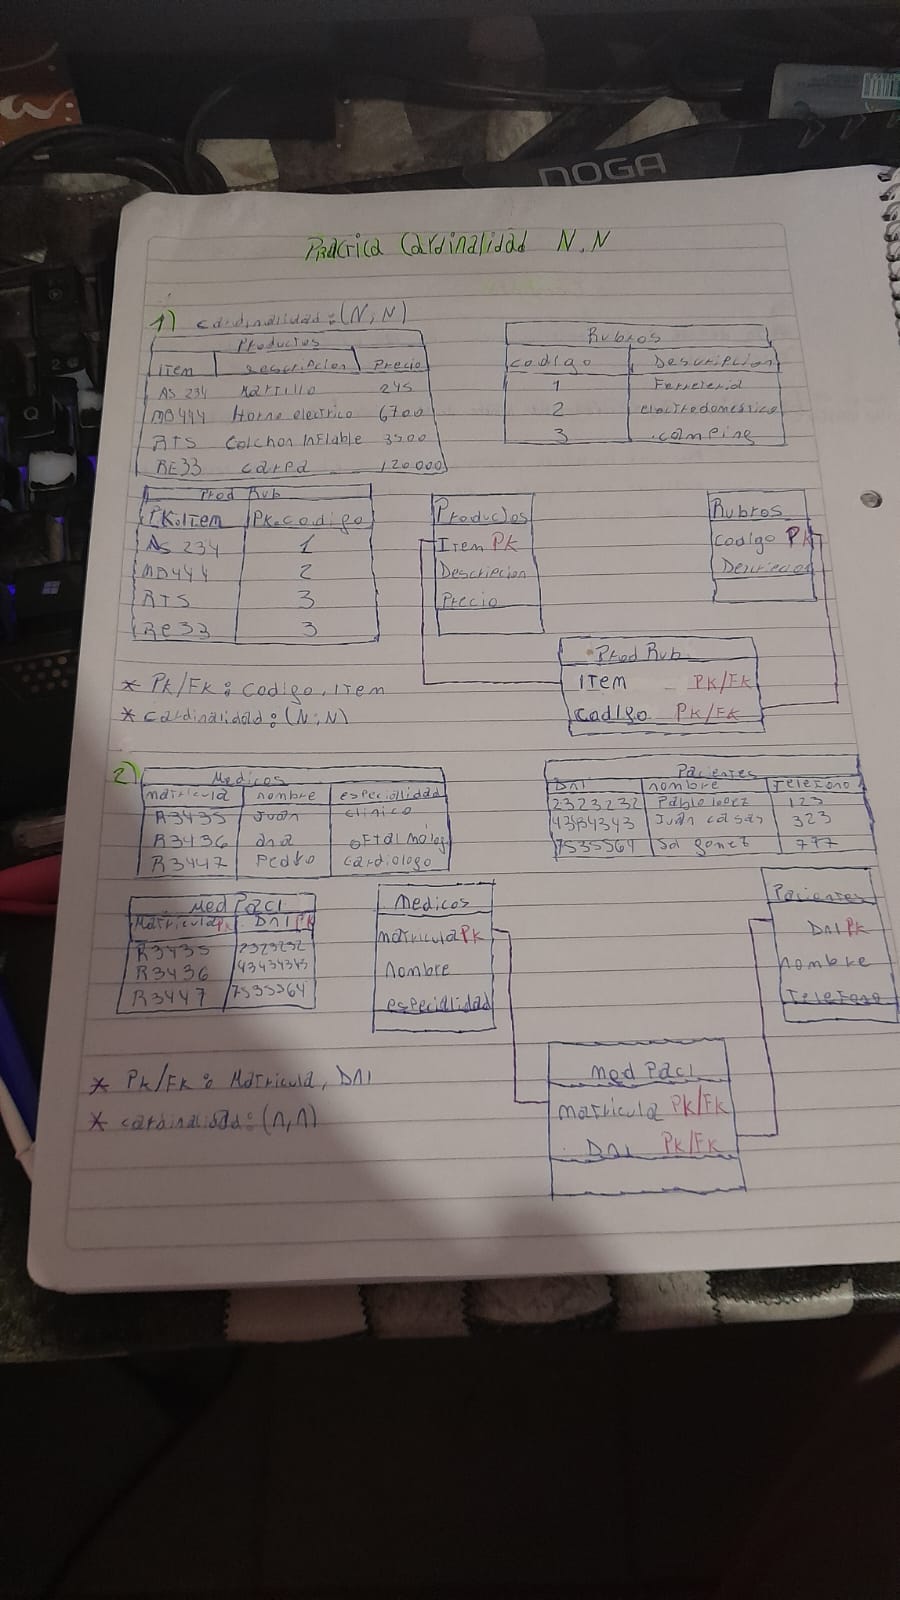 NOGA
Practica Cardinalidad N.N
1) cardinalidad:(N;N)
Productos
Item Descripcion Precio
AS 234 Martillo 245
MB444 Horno electrico 6700
RTS Colchon Inflable 3500
RE33 carpa 120.000
Rubros
codigo Descripcion
1 Ferreteria
2 electrodomestico
3 camping
Prod Rub
PK.Item PK.codigo
AS 234 1
MB444 2
RTS 3
Re33 3
Productos
Item PK
Descripcion
Precio
Rubros
codigo PK
Descripcion
Prod Rub
Item PK/FK
codigo PK/FK
* Pk/Fk: Codigo, Item
* cardinalidad:(N;N)
2)
Medicos
matricula nombre especialidad
R3435 Juan clinico
R3436 ana oftalmolog
R3447 Pedro cardiologo
Pacientes
DNI nombre Telefono
2323232 Pablo lopez 123
43434343 Juan casas 323
7535564 gomez 777
Med Paci
Matricula PK DNI PK
R3435 2323232
R3436 43434343
R3447 7535564
Medicos
matricula Pk
nombre
especialidad
Pacientes
DNI PK
nombre
Telefono
Med Paci
matricula PK/FK
DNI PK/FK
* Pk/Fk: Matricula, DNI
* cardinalidad:(n,n)